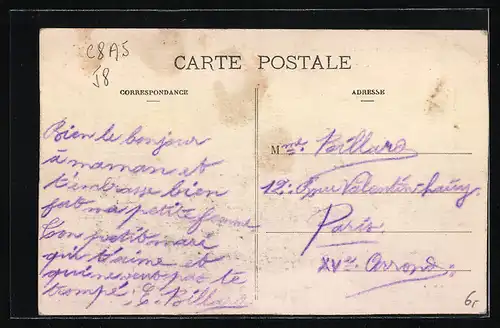 C8A5
J8
CARTE POSTALE
CORRESPONDANCE
ADRESSE
Bien le bonjour
à maman et
t'embrasse bien
fort ma petite femme
Ton petit mari
qui t'aime et
qui ne veut pas te
trompé. E. Billard
Mme Billard
12: rue Valentin-hauy
Paris
XVe Arrond:
6r